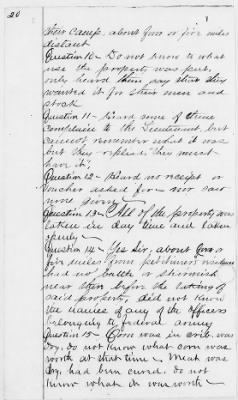 20
their camp, about four or five miles
distant
Question 10 - Do not know to what
use the property was put,
only heard them say that they
wanted it for their men and
stock
Question 11 - Heard some of them
complain to the Lieutenant, but
cannot remember what it was
but they replied they must
have it,
Question 12 - Heard no receipt or
voucher asked for - nor saw
none given
Question 13 - All of the property was
taken in day time and taken
openly
Question 14 - Yes Sir, about four or
five miles from petitioners residence
had no battle or skirmish
near there before the taking of
said property, did not know
the names of any of the officers
belonging to federal army
Question 15 - Corn was in crib. was
dry. do not know what corn was
worth at that time - Meat was
dry. had been cured. do not
know what it was worth -